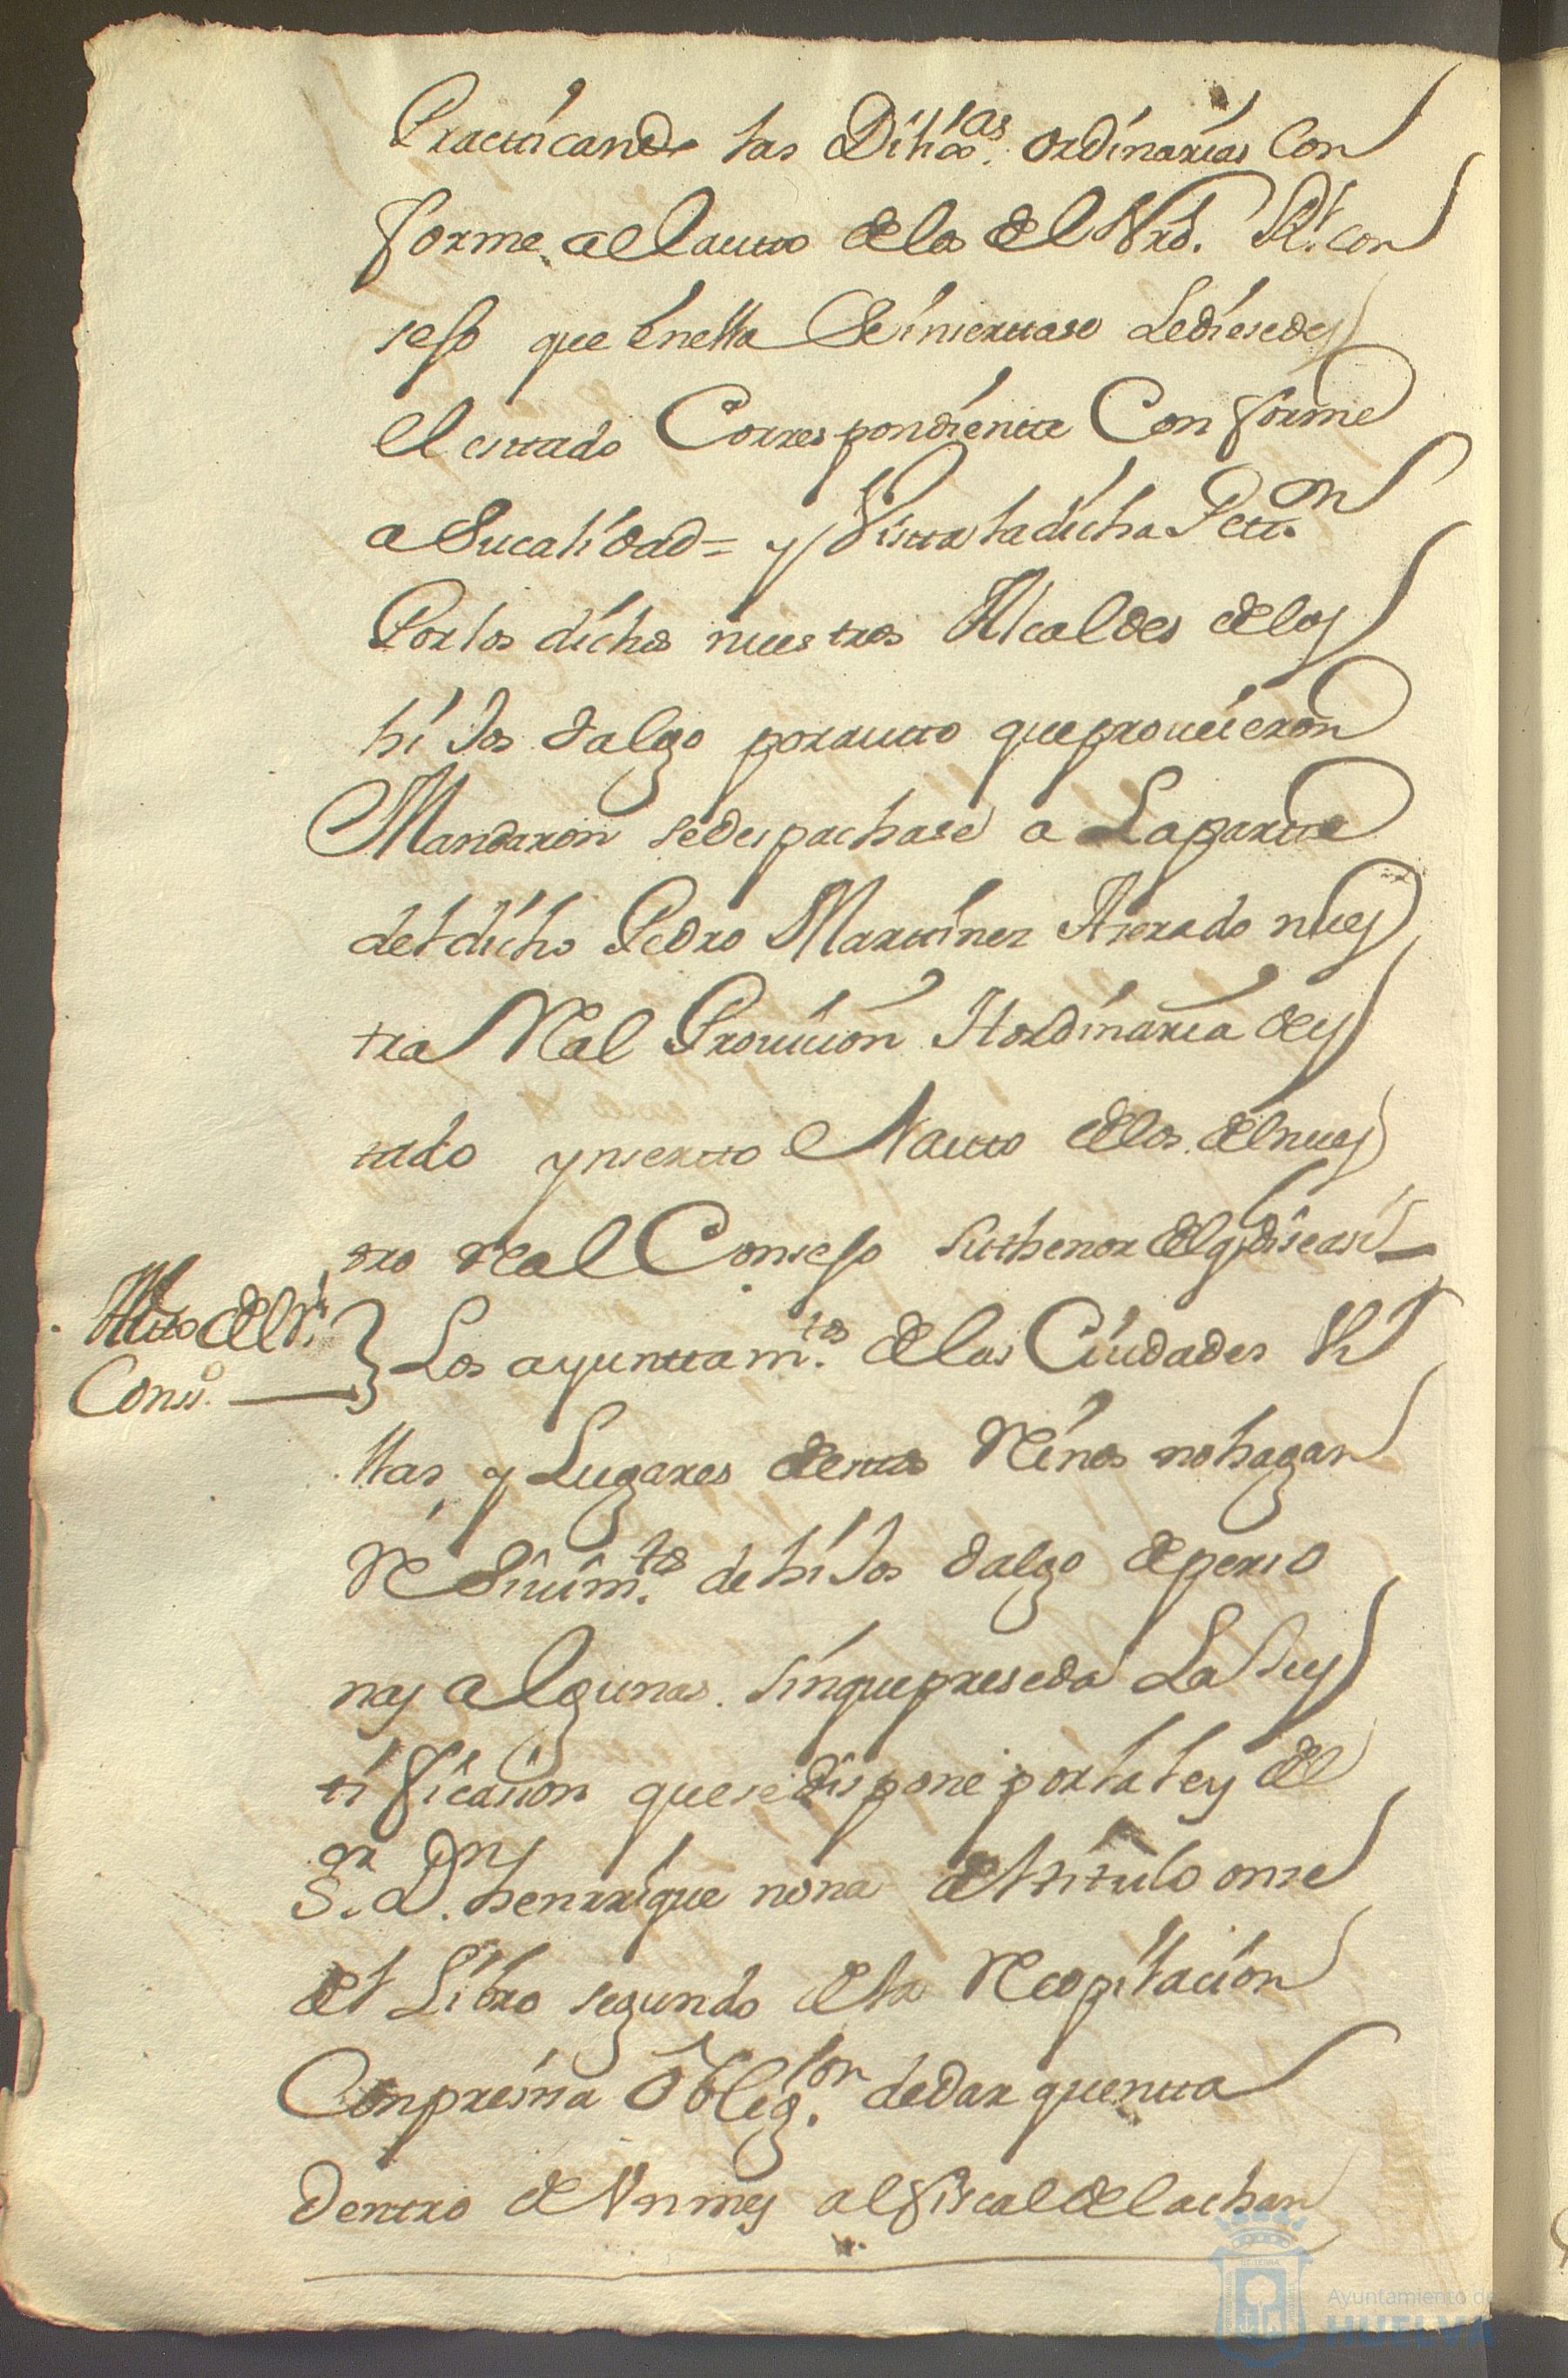 Practicando las Dilixas. ordinarias Con
forme al lauto de los del Nro. Rl. con
sejo que en ella Se insertase Le diesedes
el estado Correspondiente Conforme
a Su calidad = y Vista la dicha Petton.
Por los dichos nuestros Alcaldes de los
hijos dalgo por auto que proveieron
Mandaron se despachase a La parte
del dicho Pedro Martinez nues
tra Real Provicion Hordinaria des
tado ynserto el auto de los del nues
tro real Consejo su thenor del qual dise asi =
Auto del Rl.
Conso.
Los ayuntamtos. de las Ciudades Vi
llas y Lugares destos Reinos no hagan
Resivimtos. de hijos dalgo de perso
nas algunas sin que preseda La Jus
tificasion que se dispone por la ley del
Sor. Dn. henrrique nona del titulo onse
del Libro segundo de la Recopilacion
Con presisa Obligon. de dar quenta
dentro de Un mes al fiscal de la chan
Ayuntamiento de
HUELVA